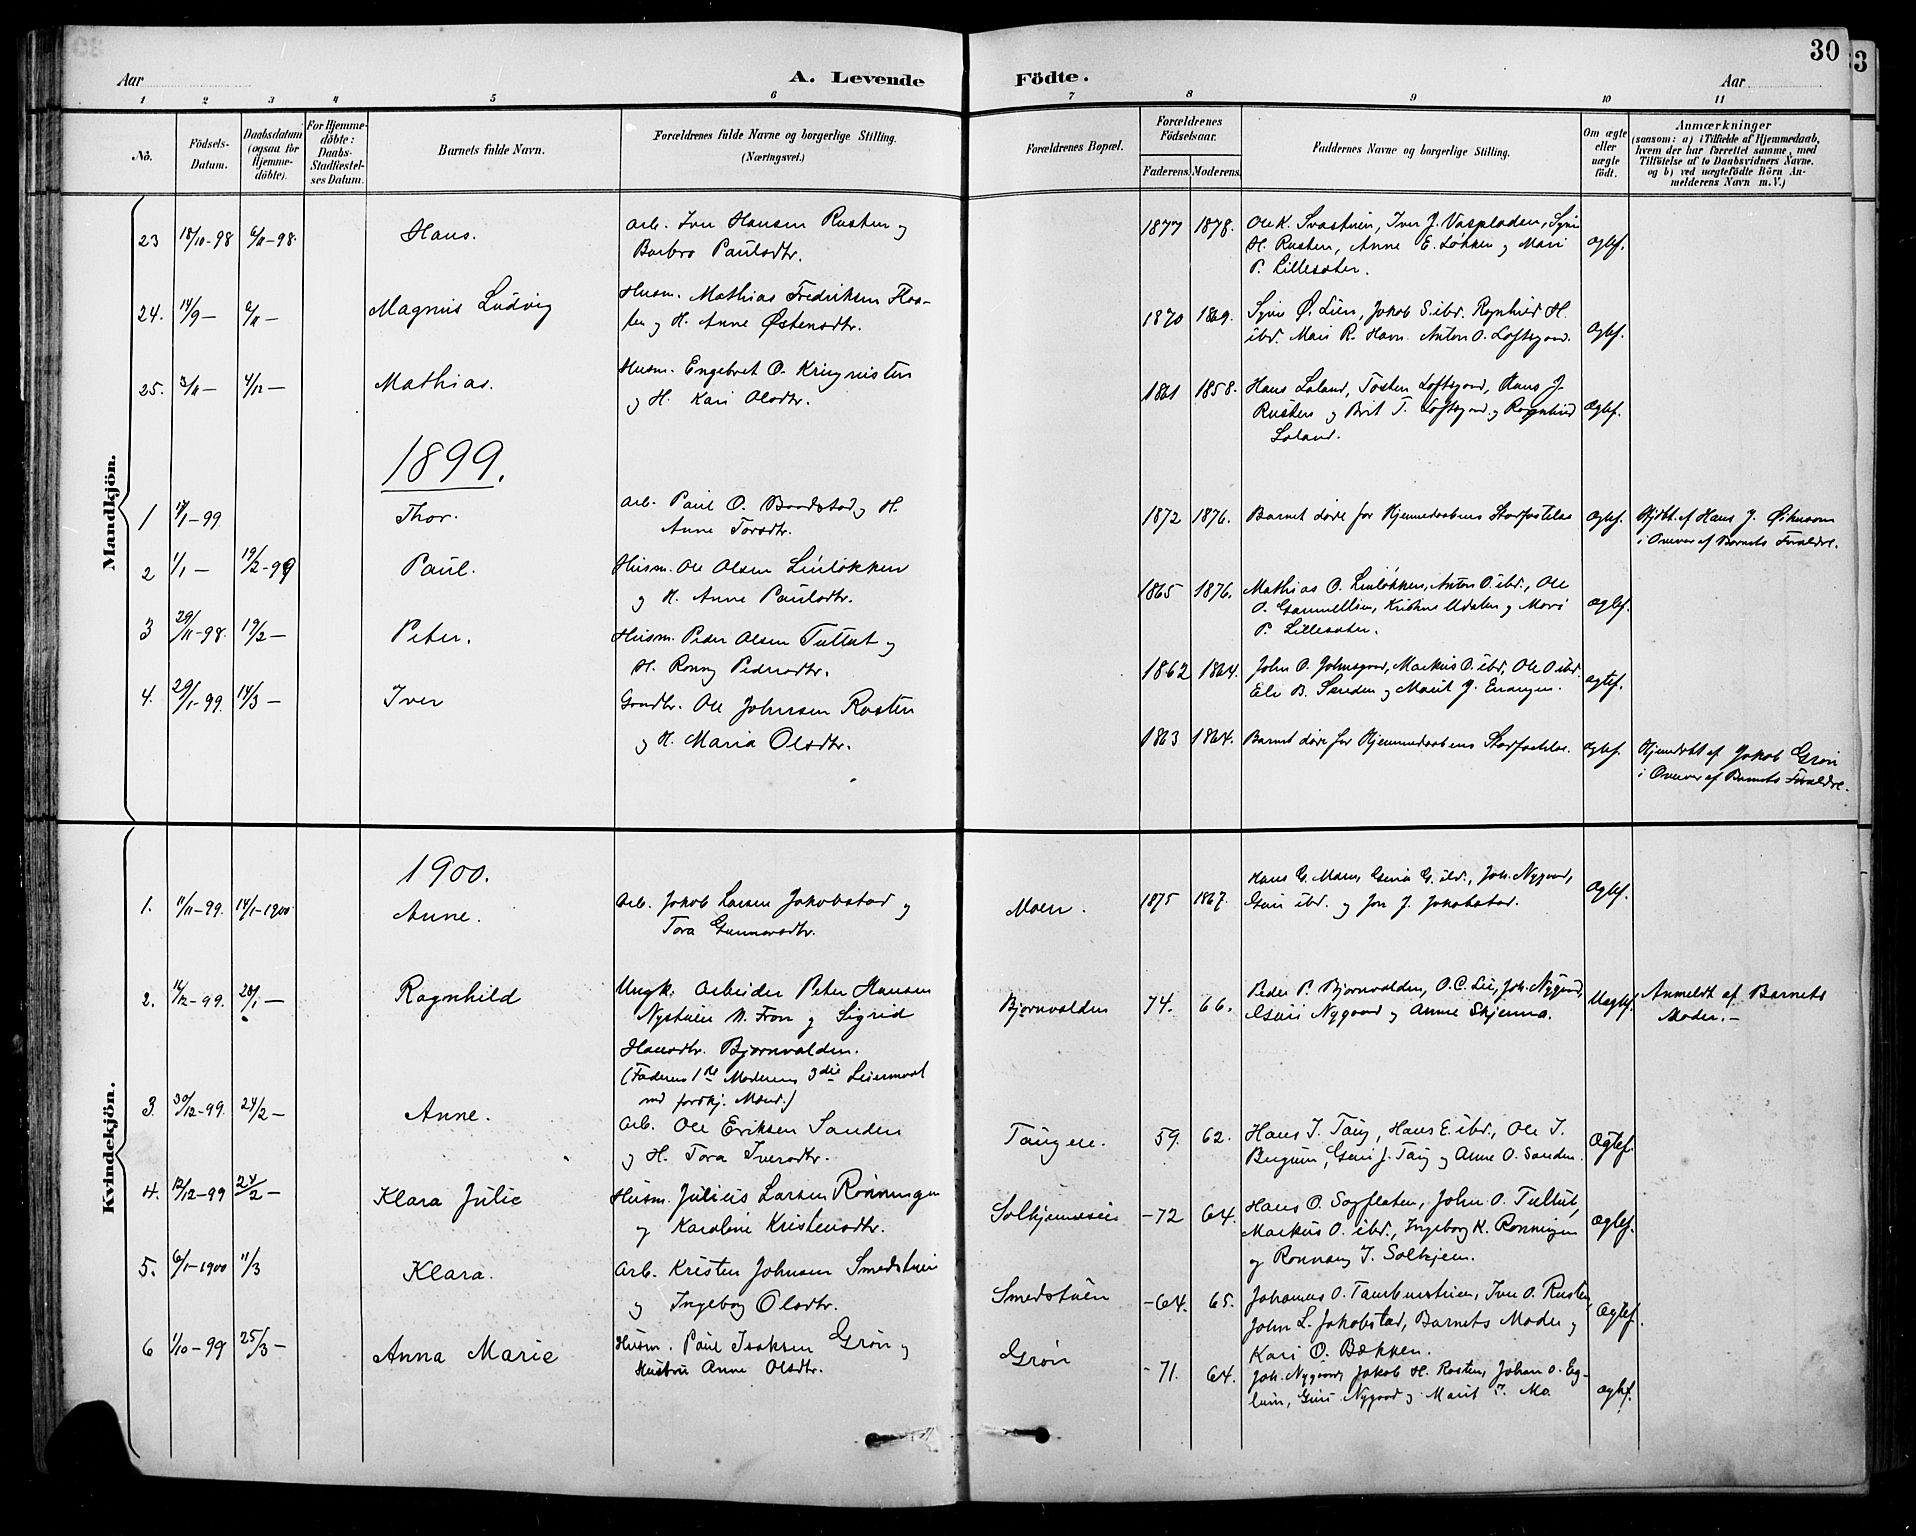 30
Aar
A. Levende Födte.
Aar
1 2 3 4 5 6 7 8 9 10 11
No.
Födsels-Datum.
Daabsdatum (ogsaa for Hjemmedöbte).
For Hjemmedöbte: Daabs-Stadfæstelses Datum.
Barnets fulde Navn.
Forældrenes fulde Navne og borgerlige Stilling.
(Næringsvei.)
Forældrenes Bopæl.
Forældrenes Födselsaar.
Faderens. Moderens.
Faddernes Navne og borgerlige Stilling.
Om ægte eller uægte födt.
Anmærkninger
(saasom: a) i Tilfælde af Hjemmedaab, hvem der har forrettet samme, med Tilföielse af to Daabsvidners Navne. og b) ved uægtefödte Börn Anmelderens Navn m. V.)
Mandkjön.
23 18/10-98 6/11-98. Hans. Arb. Iver Hansen Rusten og
Barbro Paulsdtr.
1877 1878. Ole K. Svastuen, Iver J. Vaspladsen, Syver
H. Rusten, Anne E. Løkken og Mari
P. Lillesæter.
Ægtef.
24. 14/9 - 6/11 - Magnus Ludvig Husm. Mathias Fredriksen
og H. Anne Østensdtr.
1870 1869. Syver Ø. Lien, Jakob S. ibd. Ragnhild H.
ibd. Mari R. Havn. Anton O. Loftsgaard.
Ægtef.
25. 3/11 - 4/12 - Mathias. Husm. Engebret O. Kringnisten
og H. Kari Olsdtr.
1861 1858. Hans Loland, Tosten Loftsgaard, Hans J.
Rusten og Brit T. Loftsgaard og Ragnhild
Loland.
Ægtef.
1899.
1 17/1-99 Thor. Arb. Paul O. Baadstad og H.
Anne Torsdtr.
1872 1876. Barnet døde før Hjemmedaabens Stadfæstelse Ægtef. Hjdbt. af Hans J.
i Overvær af Barnets Forældre.
2 1/1 - 19/2-99 Paul. Husm. Ole Olsen Linløkken
og H. Anne Paulsdtr.
1865 1876. Mathias O. Linløkken, Anton O. ibd., Ole
O. Gammellien, Kristine Udalen og Mari
P. Lillesæter.
Ægtef.
3 29/11-98. 19/2 - Peter. Husm. Peder Olsen Tullut og
H. Ronny Pedersdtr.
1862 1864. John O. Johnsgaard, Markus O. ibd., Ole O. ibd.
Eli B. Sanden og Marit J. Enangen.
Ægtef.
4. 29/1-99. 14/3 - Iver Gaardbr. Ole Johnsen Rusten
og H. Maria Olsdtr.
1863 1864. Barnet døde før Hjemmedaabens Stadfæstelse. Ægtef. Hjemdøbt af Jakob Grøn
i Overvær af Barnets Forældre.
Kvindekjön.
1900.
1. 11/11-99. 14/1-1900 Anne. Arb. Jakob Larsen Jakobstad og
Tora Gunnersdtr.
Moen. 1875 1867. Hans G. Moen, Guri G. ibd., Joh. Nygaard,
Guri ibd. og Jon J. Jakobstad.
Ægtef.
2. 16/12-99. 28/1 - Ragnhild Ungk. Arbeider Peter Hansen
Nystuen N. Fron og Sigrid
Hansdtr. Bjørnvolden.
(Faderens 1ste Moderens 3die Leiermaal
med forskj. Mænd.)
Bjørnvolden 74. 66. Peder P. Bjørnvolden, O.C. Lie, Joh. Nygaard,
Guri Nygaard og Anne Skjenna.
Uægtef. Anmeldt af Barnets
Moder. -
3. 30/12-99. 24/2 - Anne. Arb. Ole Eriksen Sanden
og H. Tora Iversdtr.
Taugen. 59. 62. Hans I. Taug, Hans E. ibd., Ole I.
Bergum, Guri J. Taug og Anne O. Sanden.
Ægtef.
4. 12/12-99 24/2 - Klara Julie Husm. Julius Larsen Rønningen
og Karoline Kristensdtr.
Solhjemseie -72 64. Hans O. Sagflaten, John O. Tullut,
Markus O. ibd., Ingeborg K. Rønningen
og Rønnaug I. Solhjem.
Ægtef.
5. 6/1-1900 11/3 Klara. Arb. Kristen Johnsen Smedstuen
og Ingeborg Olsdtr.
Smedstuen -64. 65. Johannes O. Taarbustuen, Iver O. Rusten,
John L. Jakobstad, Barnets Moder og
Kari O. Bækken.
Ægtef.
6 1/10-99 25/3 - Anna Marie Husm. Paul Isaksen Grøn og
Hustru Anne Olsdtr.
Grøn -71. 64. Joh. Nygaard, Jakob H. Rosten, Johan O.
Guri Nygaard og Marit I. Mo.
Ægtef.